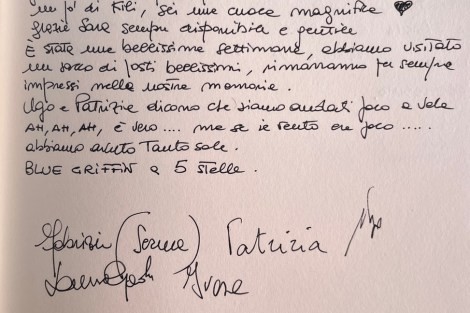 un po' di Kili, sei une cuoca magnifica
Grazie Sara sempre disponibile e gentile
È stata une bellissime settimane, abbiamo visitato
un sacco di posti bellissimi, rimarranno per sempre
impressi nelle nostre memorie.
Ugo e Patrizia dicono che siamo andati poco a vela
AH, AH, AH, è vero .... ma se il vento era poco .....
abbiamo avuto Tanto sole.
BLUE GRIFFIN a 5 stelle.
Patrizia Ugo
Ivone